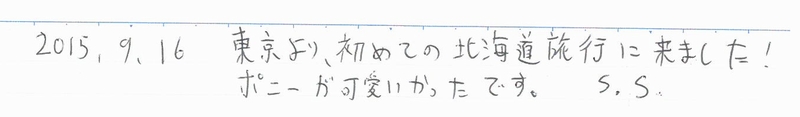 2015, 9, 16 東京より、初めての北海道旅行に来ました!
ポニーが可愛いかったです。 S. S.